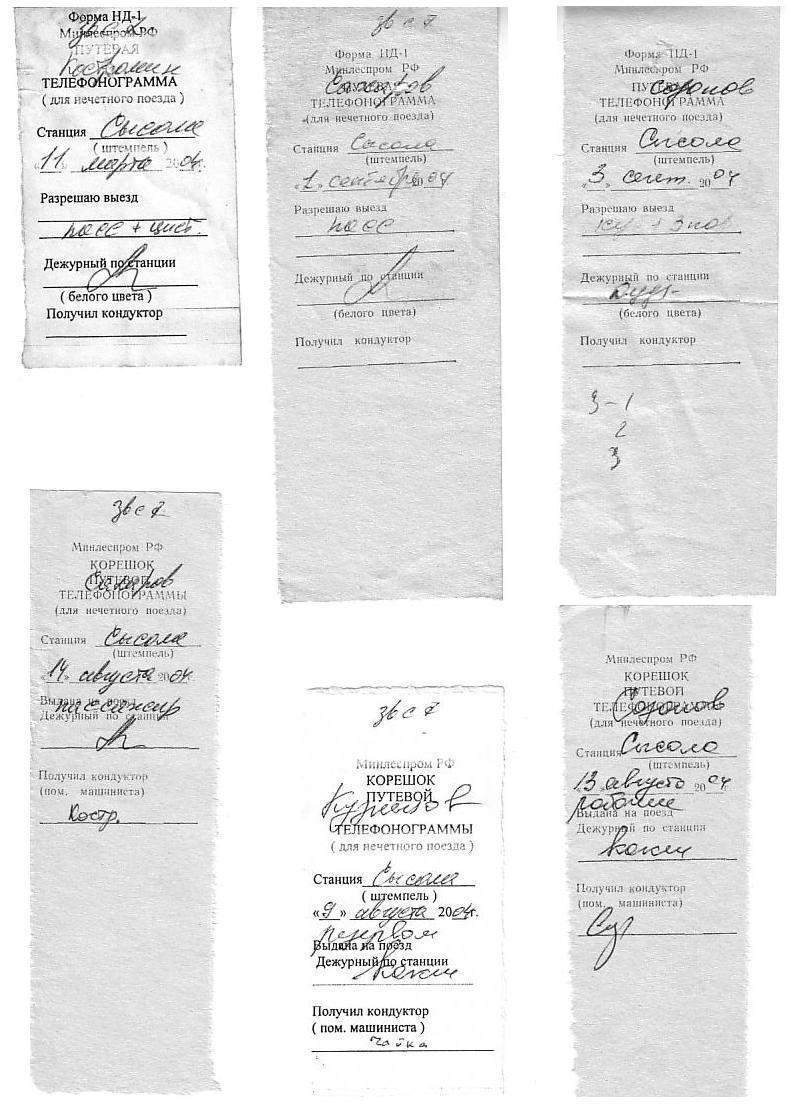 Форма НД-1
Минлеспром РФ
ПУТЕВАЯ
Костромин
ТЕЛЕФОНОГРАММА
( для нечетного поезда )
Станция Сысола
( штемпель )
«11» марта 2004г.
Разрешаю выезд
пасс + цист.
Дежурный по станции
( белого цвета )
Получил кондуктор
Форма НД-1
Минлеспром РФ
ПУТЕВАЯ
ТЕЛЕФОНОГРАММА
(для нечетного поезда)
Станция Сысола
(штемпель)
«1» сентября 2004
Разрешаю выезд
пасс
Дежурный по станции
(белого цвета)
Получил кондуктор
Форма НД-1
Минлеспром РФ
ПУТЕВАЯ
ТЕЛЕФОНОГРАММА
(для нечетного поезда)
Станция Сысола
(штемпель)
«3» сент. 2004
Разрешаю выезд
Дежурный по станции
(белого цвета)
Получил кондуктор
3-1
2
3
Минлеспром РФ
КОРЕШОК
ПУТЕВОЙ
ТЕЛЕФОНОГРАММЫ
(для нечетного поезда)
Станция Сысола
(штемпель)
«14» августа 2004
Выдана на поезд
пассажир
Дежурный по станции
Получил кондуктор
(пом. машиниста)
Костр.
Минлеспром РФ
КОРЕШОК
ПУТЕВОЙ
Кузнецов
ТЕЛЕФОНОГРАММЫ
( для нечетного поезда )
Станция Сысола
( штемпель )
«9» августа 2004г.
резервом
Выдана на поезд
Дежурный по станции
Получил кондуктор
( пом. машиниста )
Чайка
Минлеспром РФ
КОРЕШОК
ПУТЕВОЙ
ТЕЛЕФОНОГРАММЫ
(для нечетного поезда)
Станция Сысола
(штемпель)
13 августа 2004
рабочие
Выдана на поезд
Дежурный по станции
Получил кондуктор
(пом. машиниста)